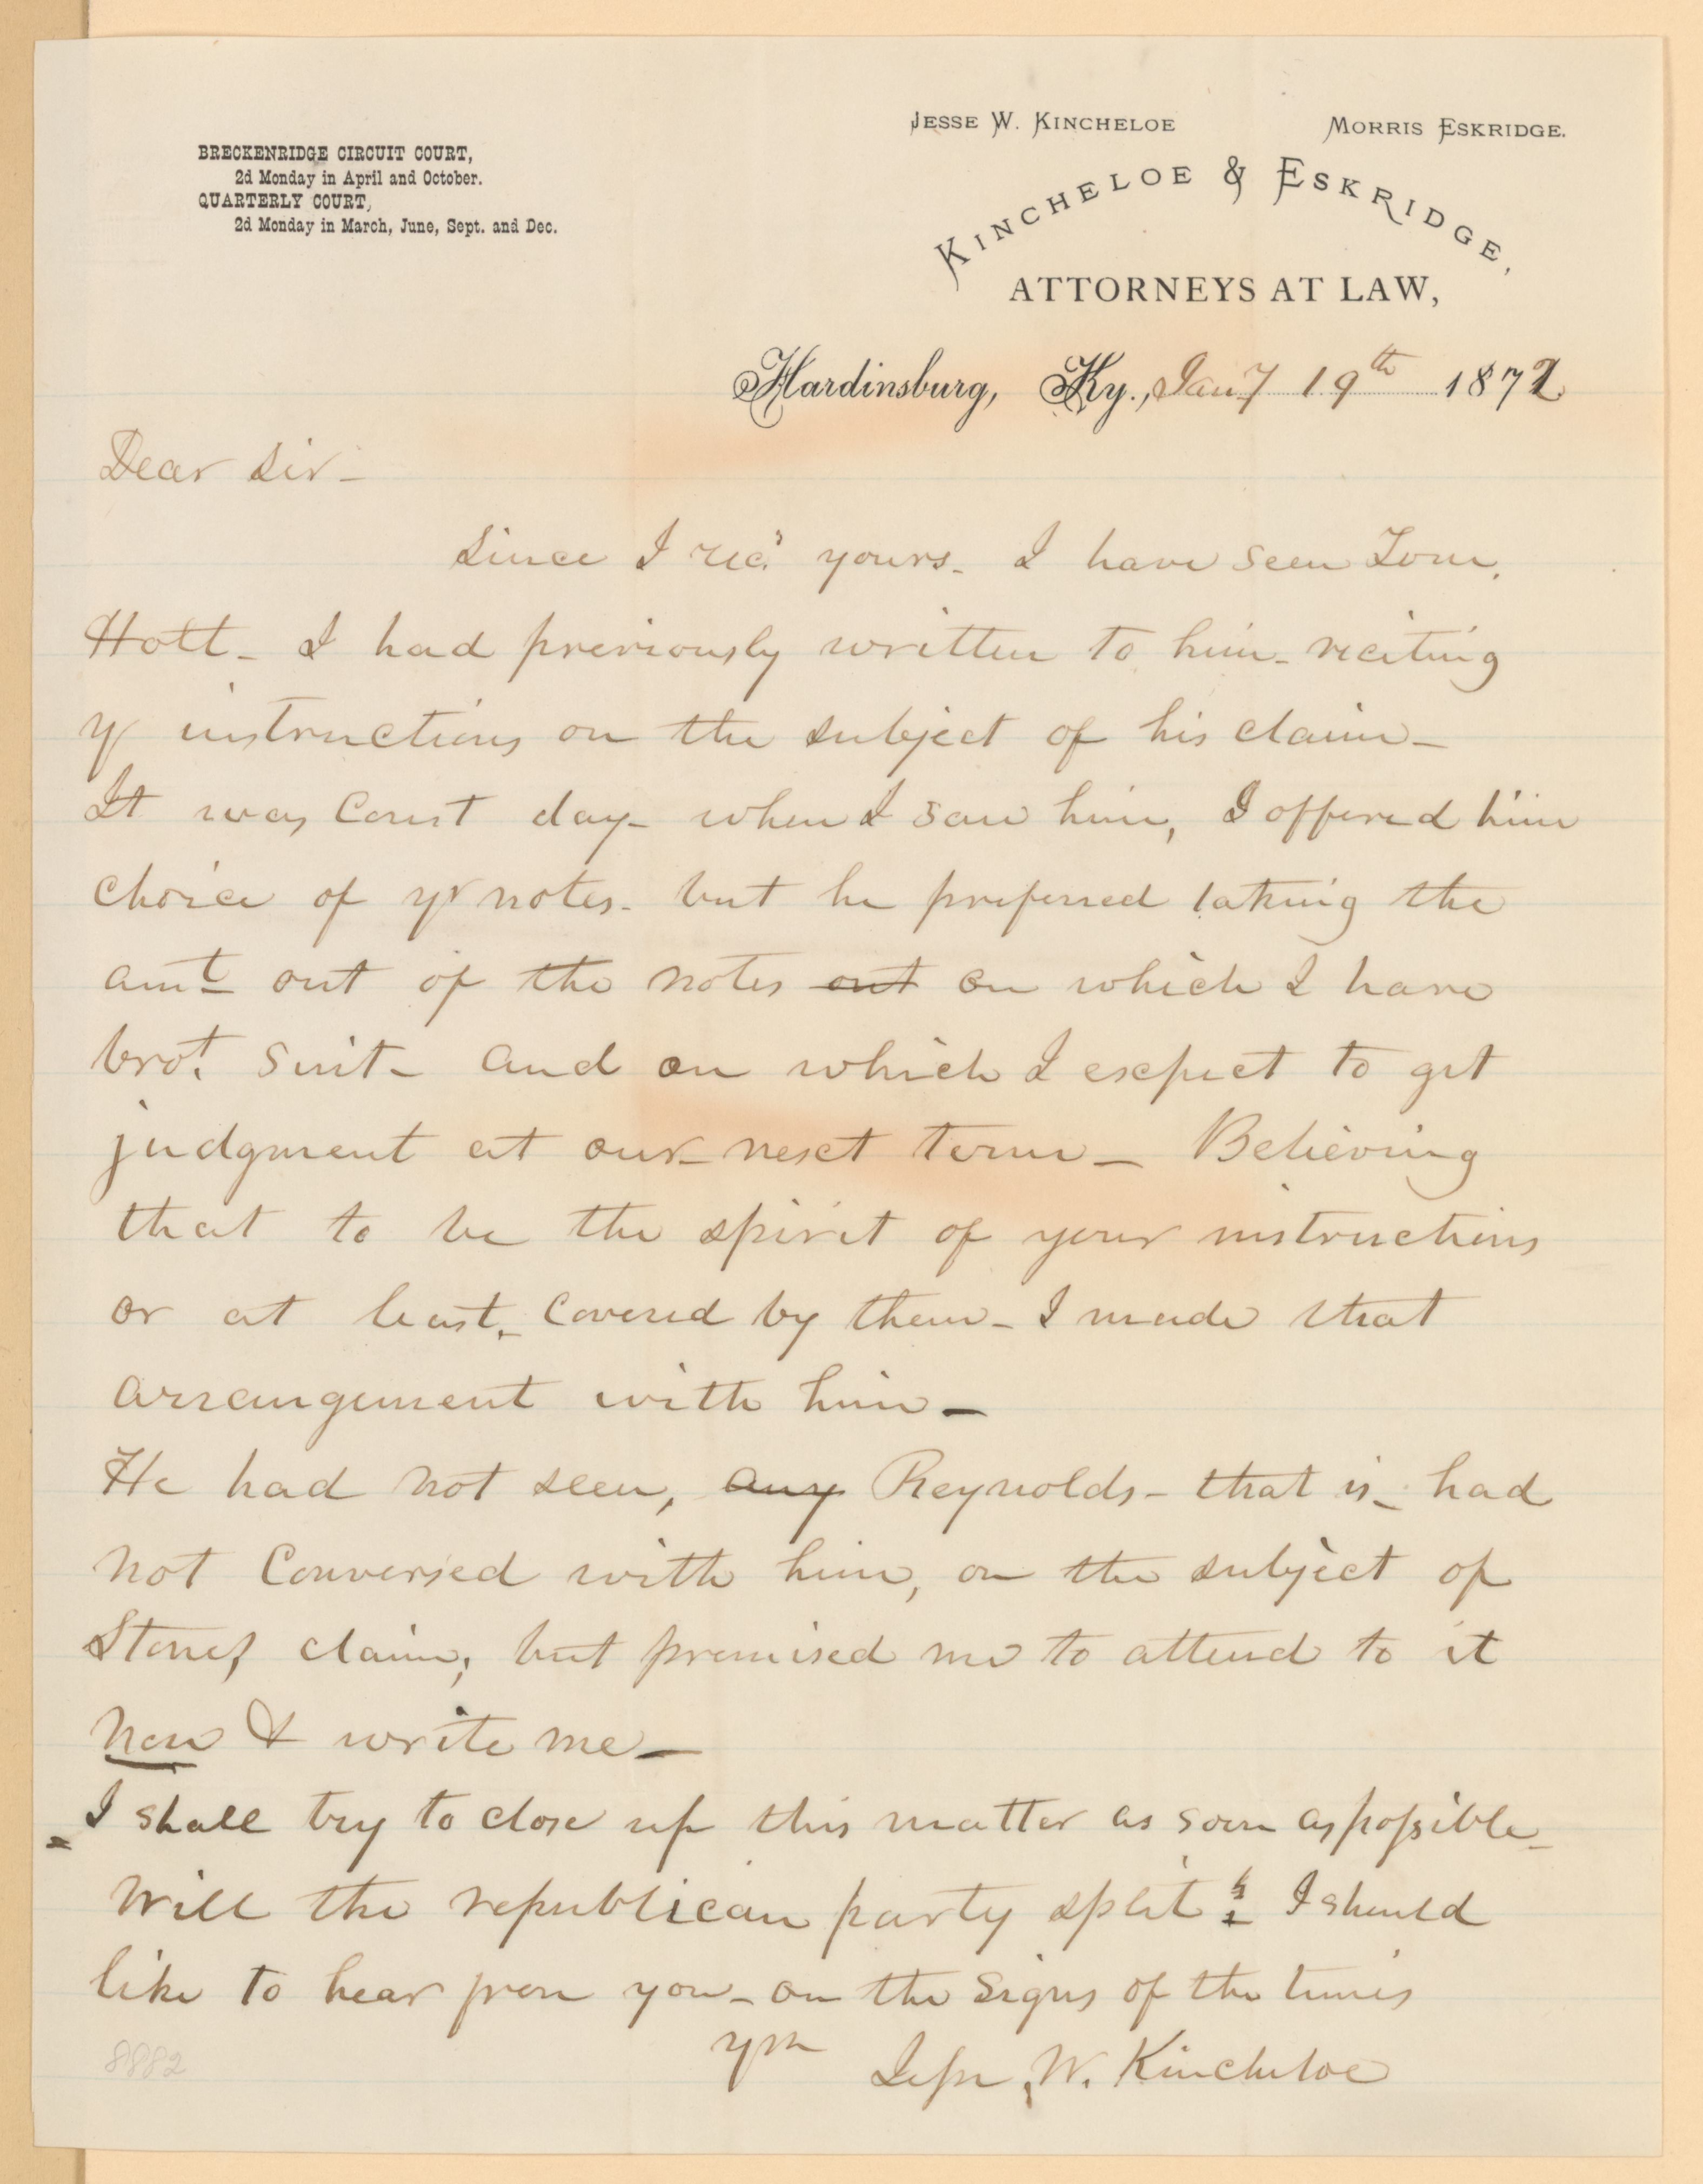 JESSE W. KINCHELOE MORRIS ESKRIDGE.
BRECKENRIDGE CIRCUIT COURT,
2d Monday in April and October.
QUARTERLY COURT,
2d Monday in March, June, Sept. and Dec.
KINCHELOE & ESKRIDGE,
ATTORNEYS AT LAW,
Hardinsburg, Ky., Jany 19th 1872
Dear Sir-
Since I recd yours- I have seen Tom.
Hott- I had previously written to him- reciting
yr instructions on the subject of his claim-
It was Court day- when I saw him, I offered him
choice of yr notes- but he preferred taking the
amt out of the notes out on which I have
brot. suit- and on which I expect to get
judgment at our next term- Believing
that to be the spirit of your instructions
or at least, covered by them- I made that
arrangement with him-
He had not seen, any Reynolds- that is- had
not Conversed with him, on the subject of
Stones claim; but promised me to attend to it
now & write me-
I shall try to close up this matter as soon as possible-
Will the republican party split? I should
like to hear from you- on the signs of the times
yrs
Jesse W. Kincheloe
8882